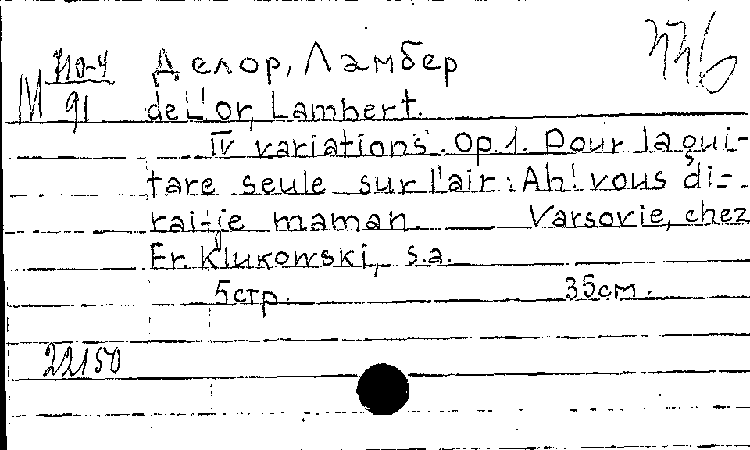 М 710-4
91
Делор, Ламбер
336
de L'or, Lambert.
IV variations. Op. 1. Pour la gui-
tare seule sur l'air: Ah! vous di-
rai-je maman. Varsovie, chez
Fr. Klukowski, s.a.
5 стр. 35 cm.
22150